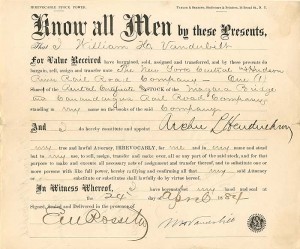 IRREVOCABLE STOCK POWER.
Know all Men by these Presents,
That I William H. Vanderbilt
For Value Received have bargained, sold, assigned and transferred, and by these presents do
bargain, sell, assign and transfer unto The New York Central & Hudson
River Rail Road Company - One (1)
Shares of the Capital STOCK of the Niagara Bridge
and Canandaigua Rail Road Company
standing in my name on the books of the said Company
And I do hereby constitute and appoint
my true and lawful Attorney, IRREVOCABLY, for me and in my name and stead
but to my use, to sell, assign, transfer and make over, all or any part of the said stock, and for that
purpose to make and execute all necessary acts of assignment and transfer thereof, and to substitute one or
more persons with like full power, hereby ratifying and confirming all that my said Attorney
or substitute or substitutes shall lawfully do by virtue hereof.
In Witness Whereof, I have hereunto set my hand and
the 24 April 1884
Signed, Sealed and Delivered in the presence of
W H Vanderbilt